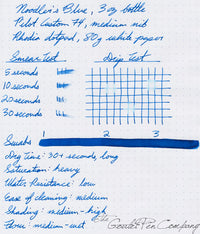 Noodler's Blue, 3 oz bottle
Pilot Custom 74, medium nib
Rhodia dotpad, 80g white paper
Smear Test Drip Test
5 seconds
10 seconds
20 seconds
30 seconds
Swabs 1 2 3
Dry Time: 30+ seconds, long
Saturation: heavy
Water Resistance: low
Ease of cleaning: medium
Shading: medium-high
Flow: medium-wet
Goulet Pen Company